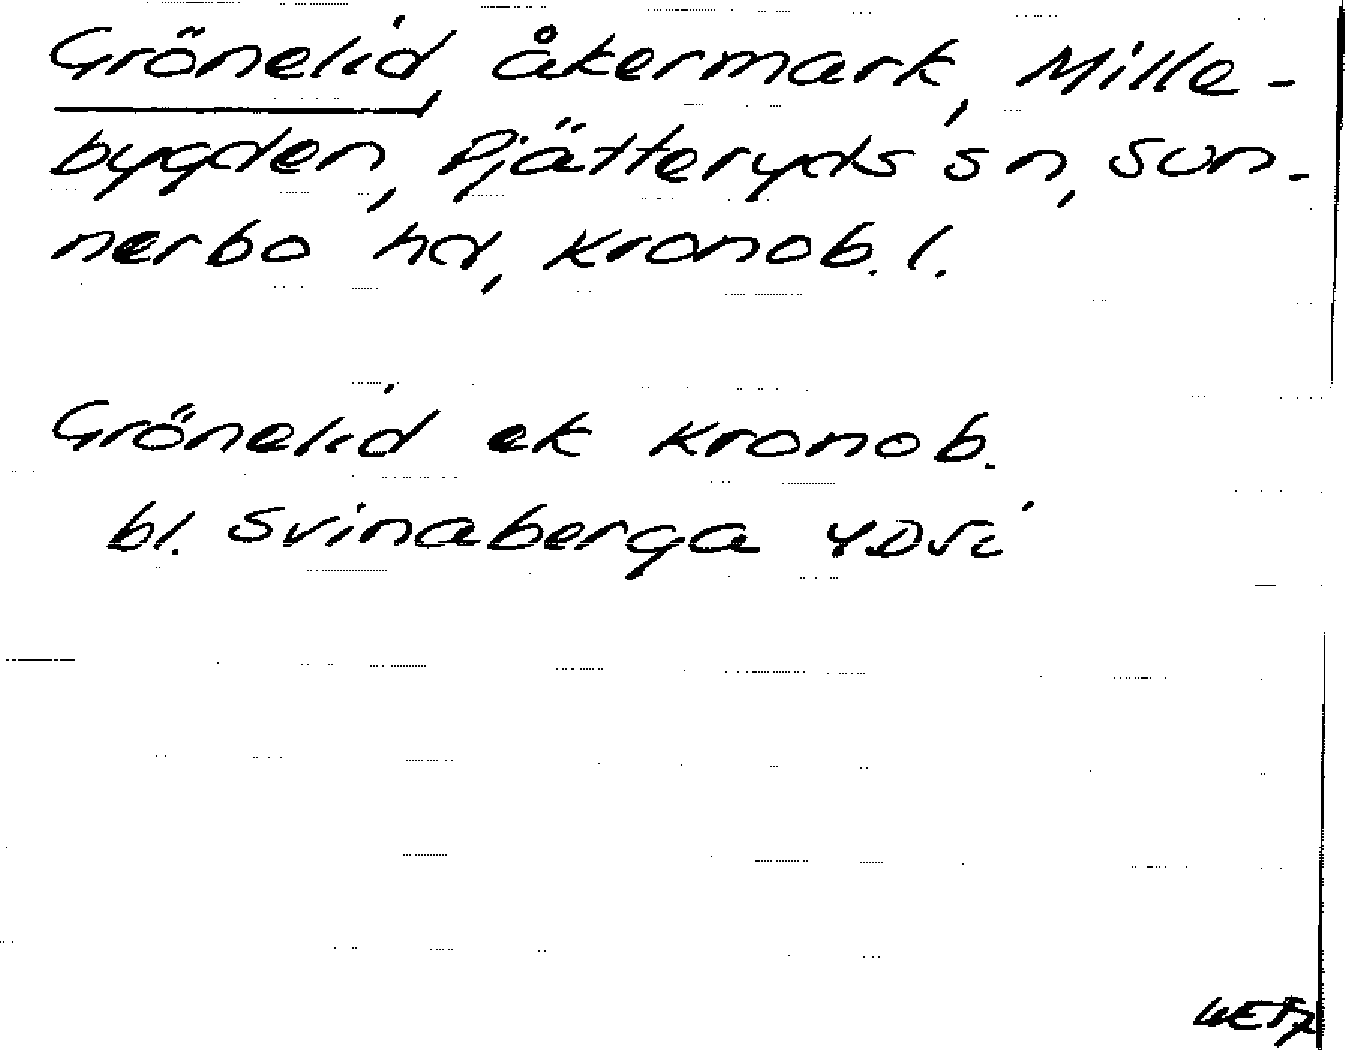 Grönelid, åkermark, Mille-
bygden, Pjätteryds sn, Sun-
nerbo hd, Kronob. l.
Grönelid ek Kronob.
bl. Svinaberga 4D5c